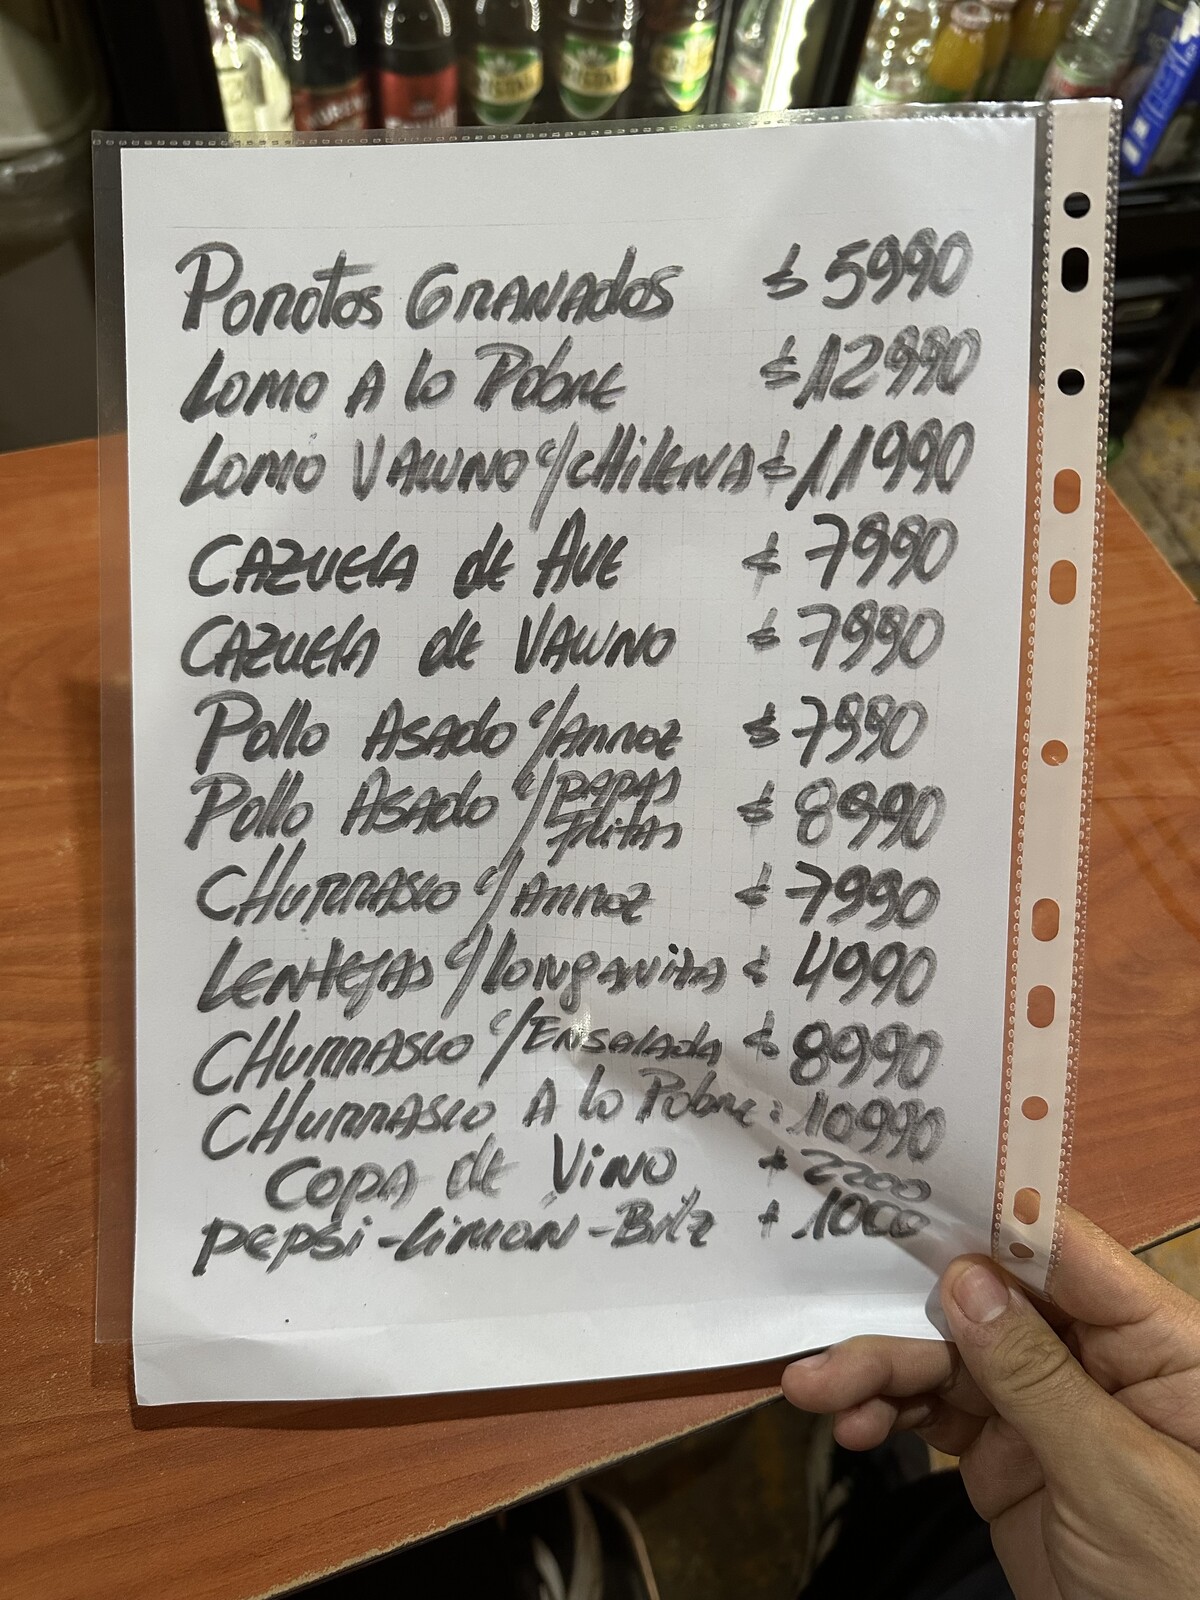 Porotos Granados $ 5990
Lomo A lo Pobre $ 12990
Lomo Vacuno c/chilena $ 11990
Cazuela de Ave $ 7990
Cazuela de Vacuno $ 7990
Pollo Asado c/Arroz $ 7990
Pollo Asado c/papas fritas $ 8990
Churrasco c/Arroz $ 7990
Lentejas c/longaniza $ 4990
Churrasco c/Ensalada $ 8990
Churrasco A lo Pobre: 10990
Copa de Vino $ 2200
Pepsi-Limon-Bilz $ 1000